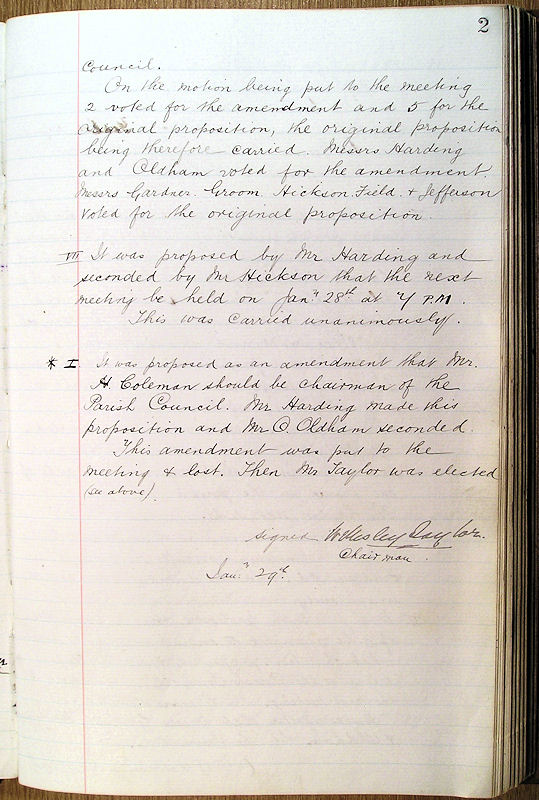 2
Council.
On the motion being put to the meeting
2 voted for the amendment and 5 for the
original proposition, the original proposition
being therefore carried. Messrs Harding
and Oldham voted for the amendment.
Messrs Gardner. Groom. Hickson. Field. & Jefferson
voted for the original proposition.
VII It was proposed by Mr Harding and
seconded by Mr Hickson that the next
meeting be held on Jany 28th at 7 P.M.
This was carried unanimously.
* I It was proposed as an amendment that Mr.
H. Coleman should be chairman of the
Parish Council. Mr Harding made this
proposition and Mr O. Oldham seconded.
This amendment was put to the
meeting & lost. Then Mr Taylor was elected
(see above).
signed Wellesley Taylor.
Chairman.
Jany 29th